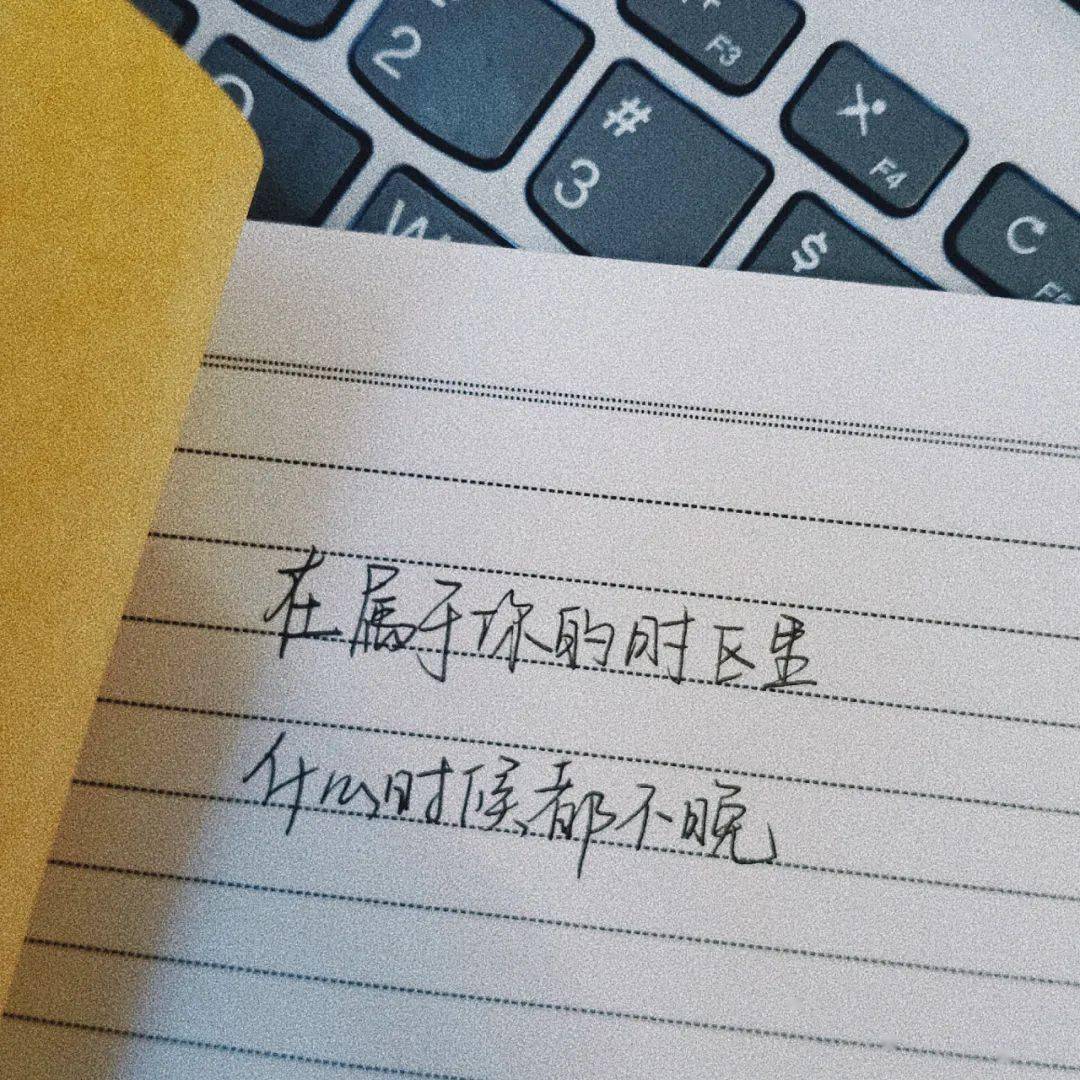 2
F3
#
3
F4
$
C
F5
W
在属于你的时区里
什么时候都不晚